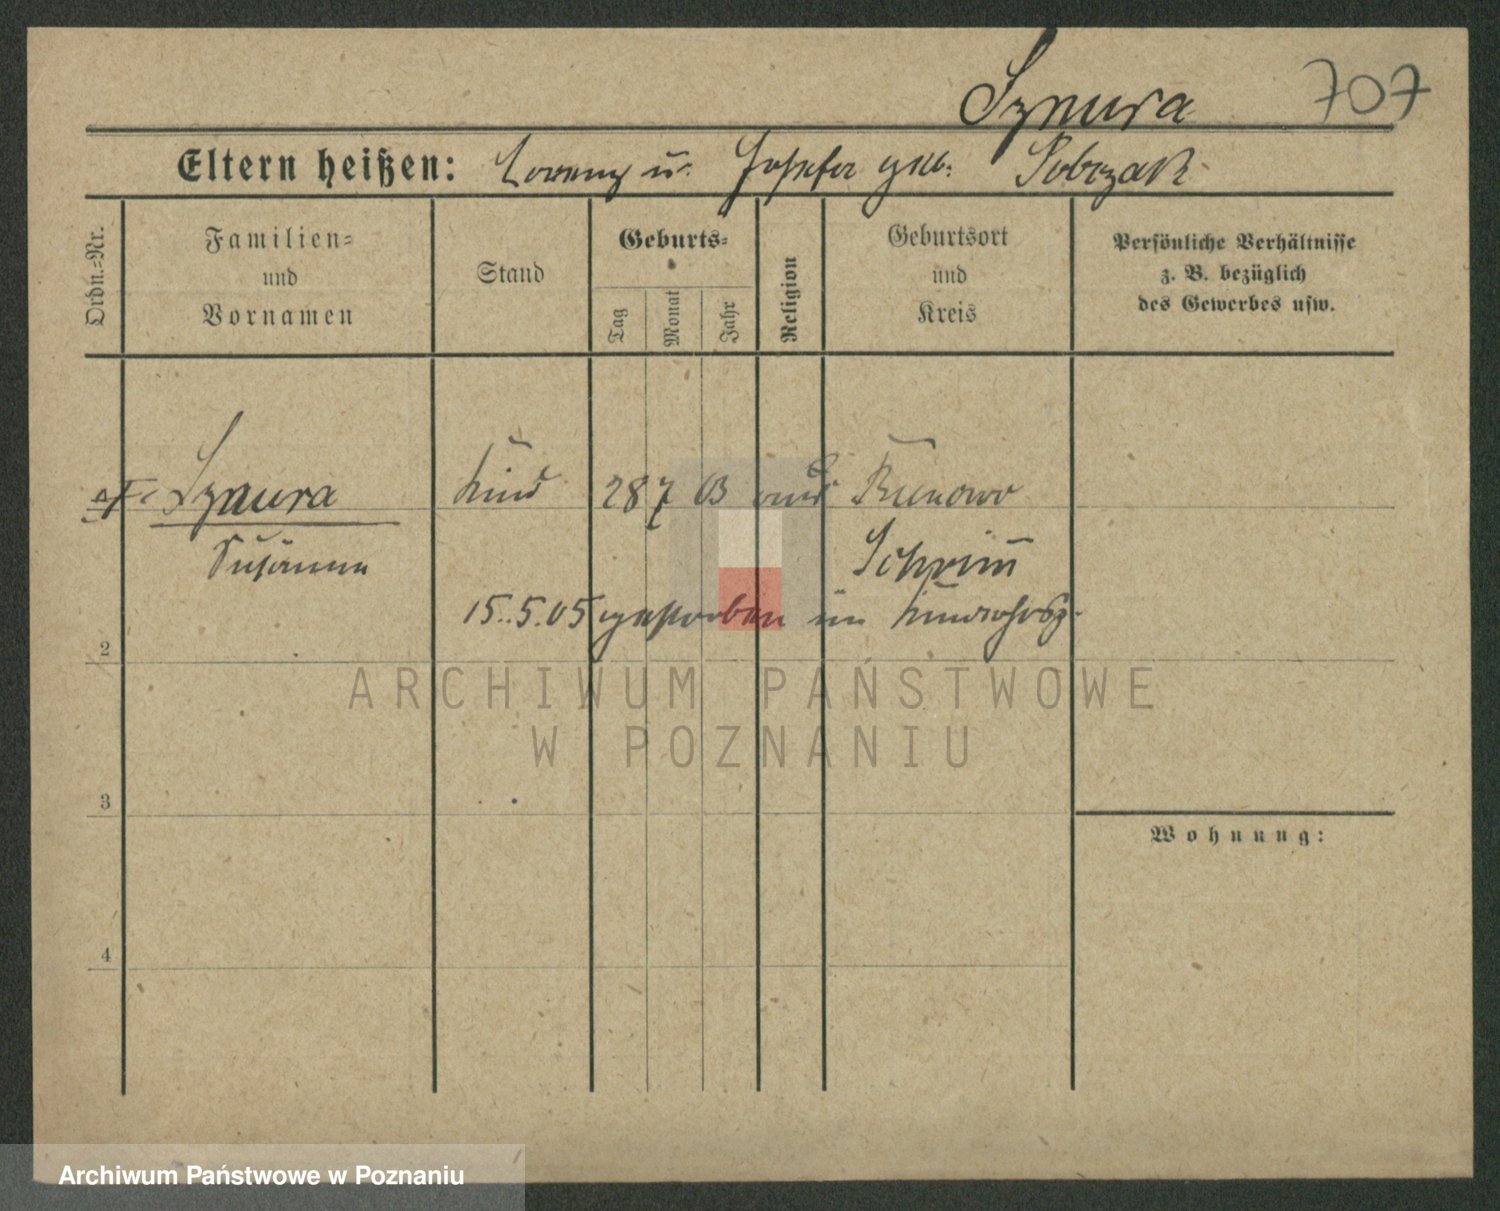 Sznura 707
Eltern heißen: Lorenz u. Josefa geb. Sobczak
Ordn.-Nr.
Familien-
und
Vornamen
Stand
Geburts-
Tag
Monat
Jahr
Religion
Geburtsort
und
Kreis
Persönliche Verhältnisse
z. B. bezüglich
des Gewerbes usw.
Sznura Kind 28 7 03 Runowo
Susanna Schrimm
15.5.05 gestorben im
2
ARCHIWUM PAŃSTWOWE
W POZNANIU
3
Wohnung:
4
Archiwum Państwowe w Poznaniu